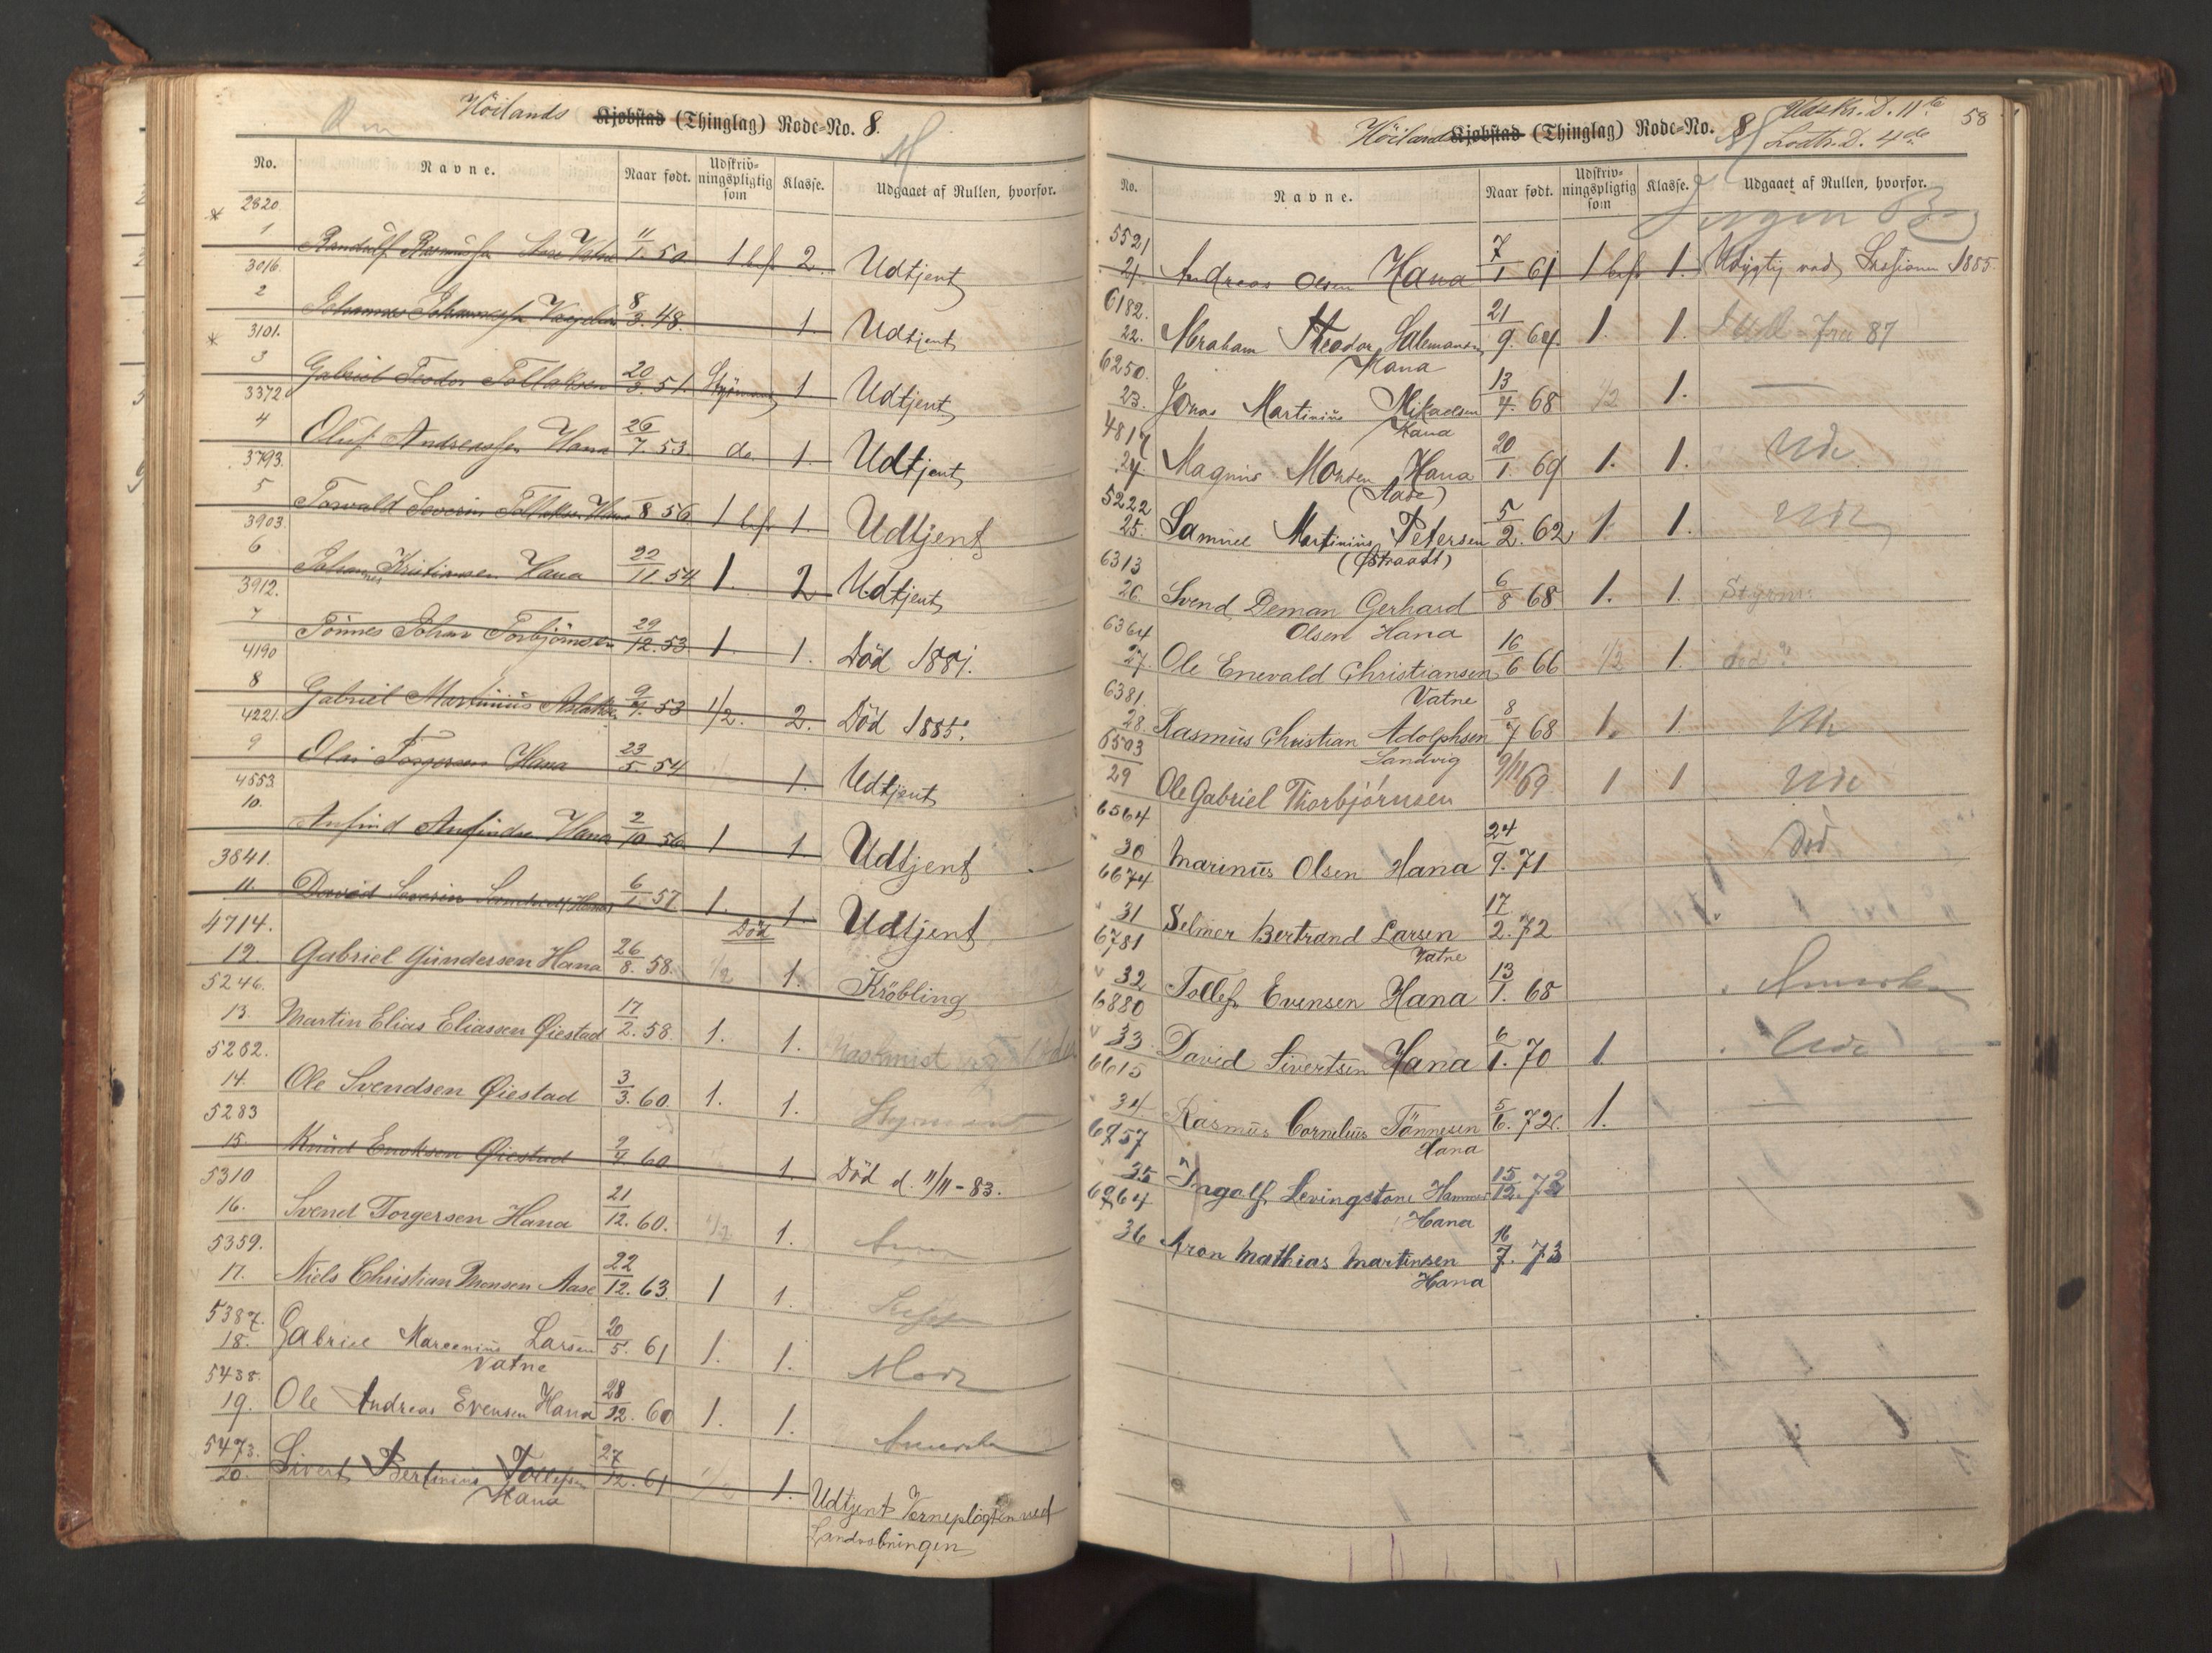 Höilands Kjøbstad (Thinglag) Rode-No. 8.
No. Navne. Naar født. Udskriv-ningspligtig som Klasse. Udgaaet af Rullen, hvorfor.
2820
1 11/1 50 1 bef 2. Udtjent
3016.
2 Johannes Johannessen 8/3 48. 1. Udtjent
3101.
3 Gabriel Teodor Tollaksen 20/3. 51. Styrmand 1 Udtjent
3372
4 Oluf Andreassen Hana 26/7. 53. do. 1. Udtjent
3793.
5 Torvald Severin Tollaksen Hana 8 56. 1 bef 1. Udtjent
3903.
6 Johannes Kristiansen Hana 22/11 54 1. 2 Udtjent
3912.
7 Tönnes Johan Torbjörnsen 29/12. 53. 1. 1. Död 1881.
4190
8 Gabriel Martinius Aslaksen 9/4. 53 1/2. 2. Död 1885.
4221.
9 Olai Torgersen Hana 23/5. 54 1. Udtjent
4553.
10. Anfind Anfindsen Hana 2/10 56 1 1 Udtjent
3841.
11. David Severin Hana 6/1 57 1. 1. Udtjent
4714. Död
12. Gabriel Gundersen Hana 26/8. 58. 1/2 1. Kröbling
5246.
13. Martin Elias Eliassen Øiestad 17/2. 58. 1. 1. Maskinist
5262.
14. Ole Svendsen Øiestad 3/3. 60. 1. 1. Styrmand
5283
15 Knud Enoksen Øiestad 9/4 60 1. Död d. 11/11 - 83.
5310
16. Svend Torgersen Hana 21/12. 60. 1/2 1.
5359.
17. Niels Christian Monsen Aase 22/12. 63. 1 1.
5387.
18. Gabriel Marcenius Larsen 20/5. 61 1. 1.
Vatne
5438.
19. Ole Andreas Evensen Hana 28/12. 60 1. 1. Amerika
5473.
20. Sivert Bertinius Tollefsen 27/12. 61 1/2 1. Udtjent Vernepligten ved
Hana Landrobningen
Udskr. D. 11te 58
Höilands Kjøbstad (Thinglag) Rode-No. 8 Lodts. D. 4de
No. Navne. Naar født. Udskriv-ningspligtig som Klasse. Udgaaet af Rullen, hvorfor.
5521
21. Andreas Olsen Hana 7/1 61 1 bef 1. Udygtig ved Sessionen 1885.
6182.
22. Abraham Theodor Salemonsen 21/9. 64. 1. 1. fra 87
Hana
6250.
23. Jonas Martinius Mikaelsen 13/4. 68 1/2 1.
Hana
4817
24 Magnus Monsen Hana 20/1. 69 1. 1. Ude
(Aase)
5222
25. Samuel Martinius Petersen 5/2. 62 1. 1. Ude
(Østraadt)
6313
26. Svend Deman Gerhard 6/8 68 1. 1. Styrm.
Olsen Hana
6364
27. Ole Enevald Christiansen 16/6 66 1/2 1. död?
Vatne
6381.
28. Rasmus Christian Adolphsen 8/7 68 1. 1 Ude
Sandvig
6503
29 Ole Gabriel Thorbjörnsen 9/11 69 1 1 Ude
6564
30 Marinus Olsen Hana 24/9. 71. Död
6674
31 Selmer Bertrand Larsen 17/2. 72
Vatne
6781
32 Tollef Evensen Hana 13/1. 68 Amerika
6880
33 David Sivertsen Hana 6/1. 70 1. Ude
6615
34 Rasmus Cornelius Tönnesen 5/6. 72. 1.
Hana
6957
35 Ingolf Levingstone Hammer 15/12. 73
Hana
6964
36 Aron Mathias Martinsen 16/7. 73
Hana